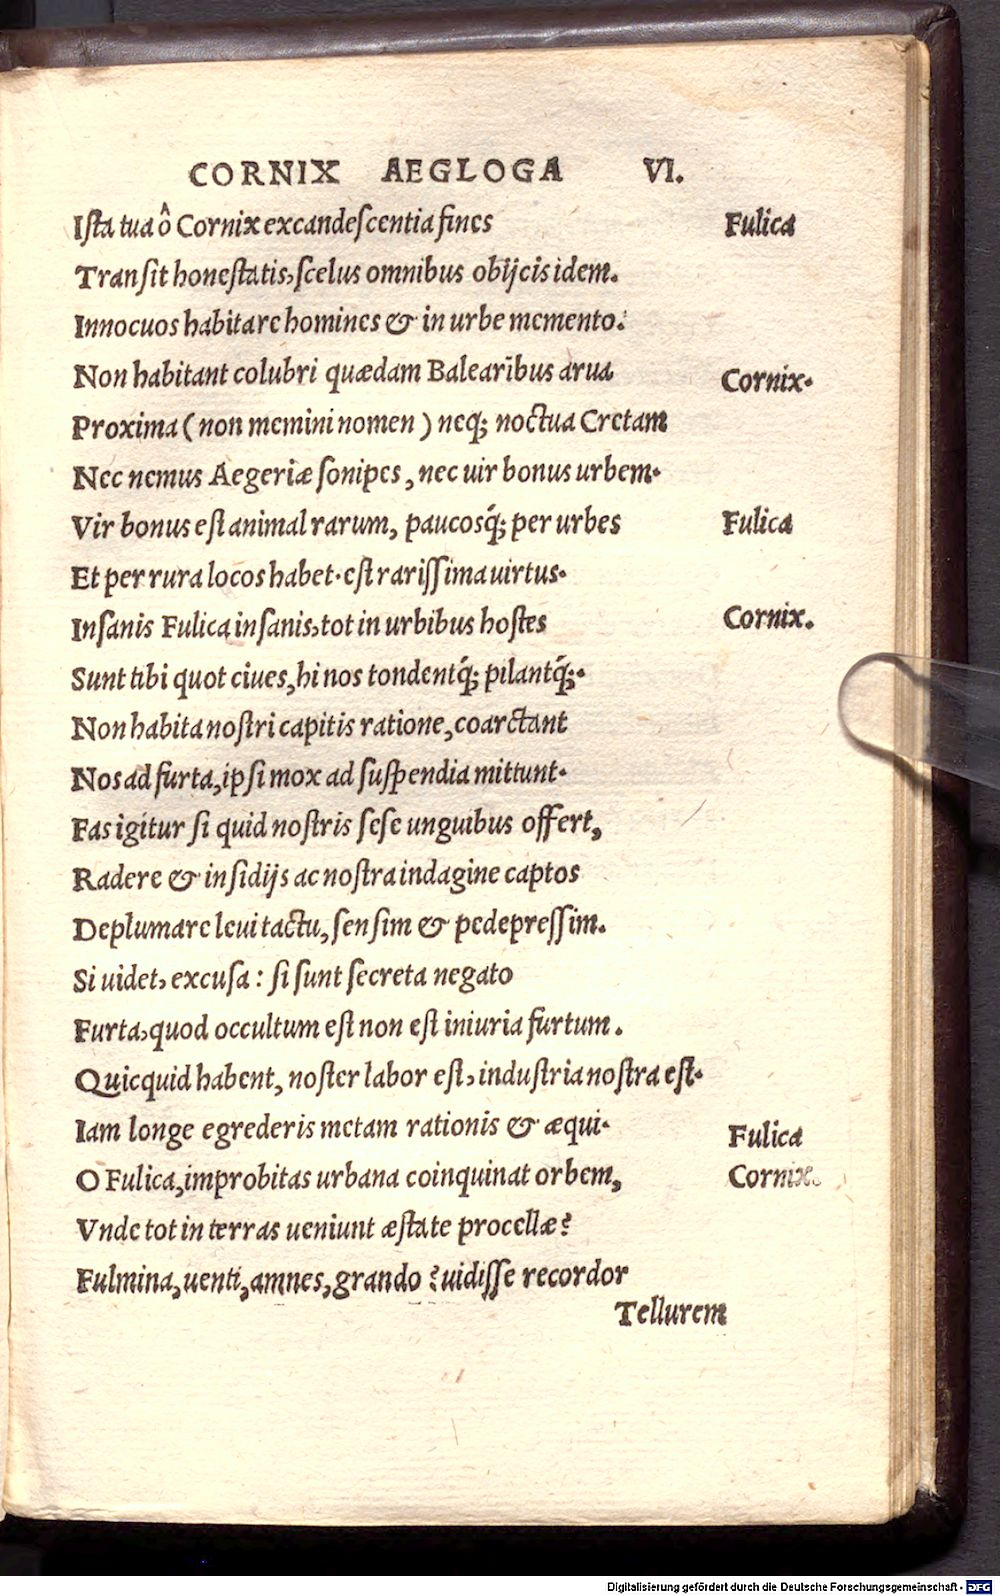 CORNIX AEGLOGA VI.
Ista tua ô Cornix excandescentia fines Fulica
Transit honestatis, scelus omnibus obijcis idem.
Innocuos habitare homines & in urbe memento.
Non habitant colubri quædam Balearibus arua Cornix.
Proxima ( non memini nomen ) neq; noctua Cretam
Nec nemus Aegeriæ sonipes, nec uir bonus urbem.
Vir bonus est animal rarum, paucosq́; per urbes Fulica
Et per rura locos habet. est rarissima uirtus.
Insanis Fulica insanis, tot in urbibus hostes Cornix.
Sunt tibi quot ciues, hi nos tondentq́; pilantq́;.
Non habita nostri capitis ratione, coarctant
Nos ad furta, ipsi mox ad suspendia mittunt.
Fas igitur si quid nostris sese unguibus offert,
Radere & insidijs ac nostra indagine captos
Deplumare leui tactu, sensim & pedepressim.
Si uidet, excusa : si sunt secreta negato
Furta, quod occultum est non est iniuria furtum.
Quicquid habent, noster labor est, industria nostra est.
Iam longe egrederis metam rationis & æqui. Fulica
O Fulica, improbitas urbana coinquinat orbem, Cornix.
Vnde tot in terras ueniunt æstate procellæ?
Fulmina, uenti, amnes, grando ? uidisse recordor
Tellurem
Digitalisierung gefördert durch die Deutsche Forschungsgemeinschaft - DFG